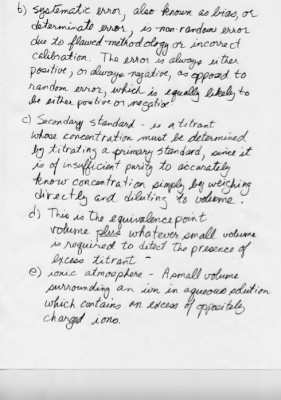 b) systematic error, also known as bias, or
determinate error, is non-random error
due to flawed methodology or incorrect
calibration. The error is always either
positive, or always negative, as opposed to
random error, which is equally likely to
be either positive or negative
c) Secondary standard - is a titrant
whose concentration must be determined
by titrating a primary standard, since it
is of insufficient purity to accurately
know concentration simply by weighing
directly and diluting to volume.
d) This is the equivalence point
volume plus whatever small volume
is required to detect the presence of
excess titrant -
e) ionic atmosphere - A small volume
surrounding an ion in aqueous solution
which contains an excess of oppositely
charged ions.